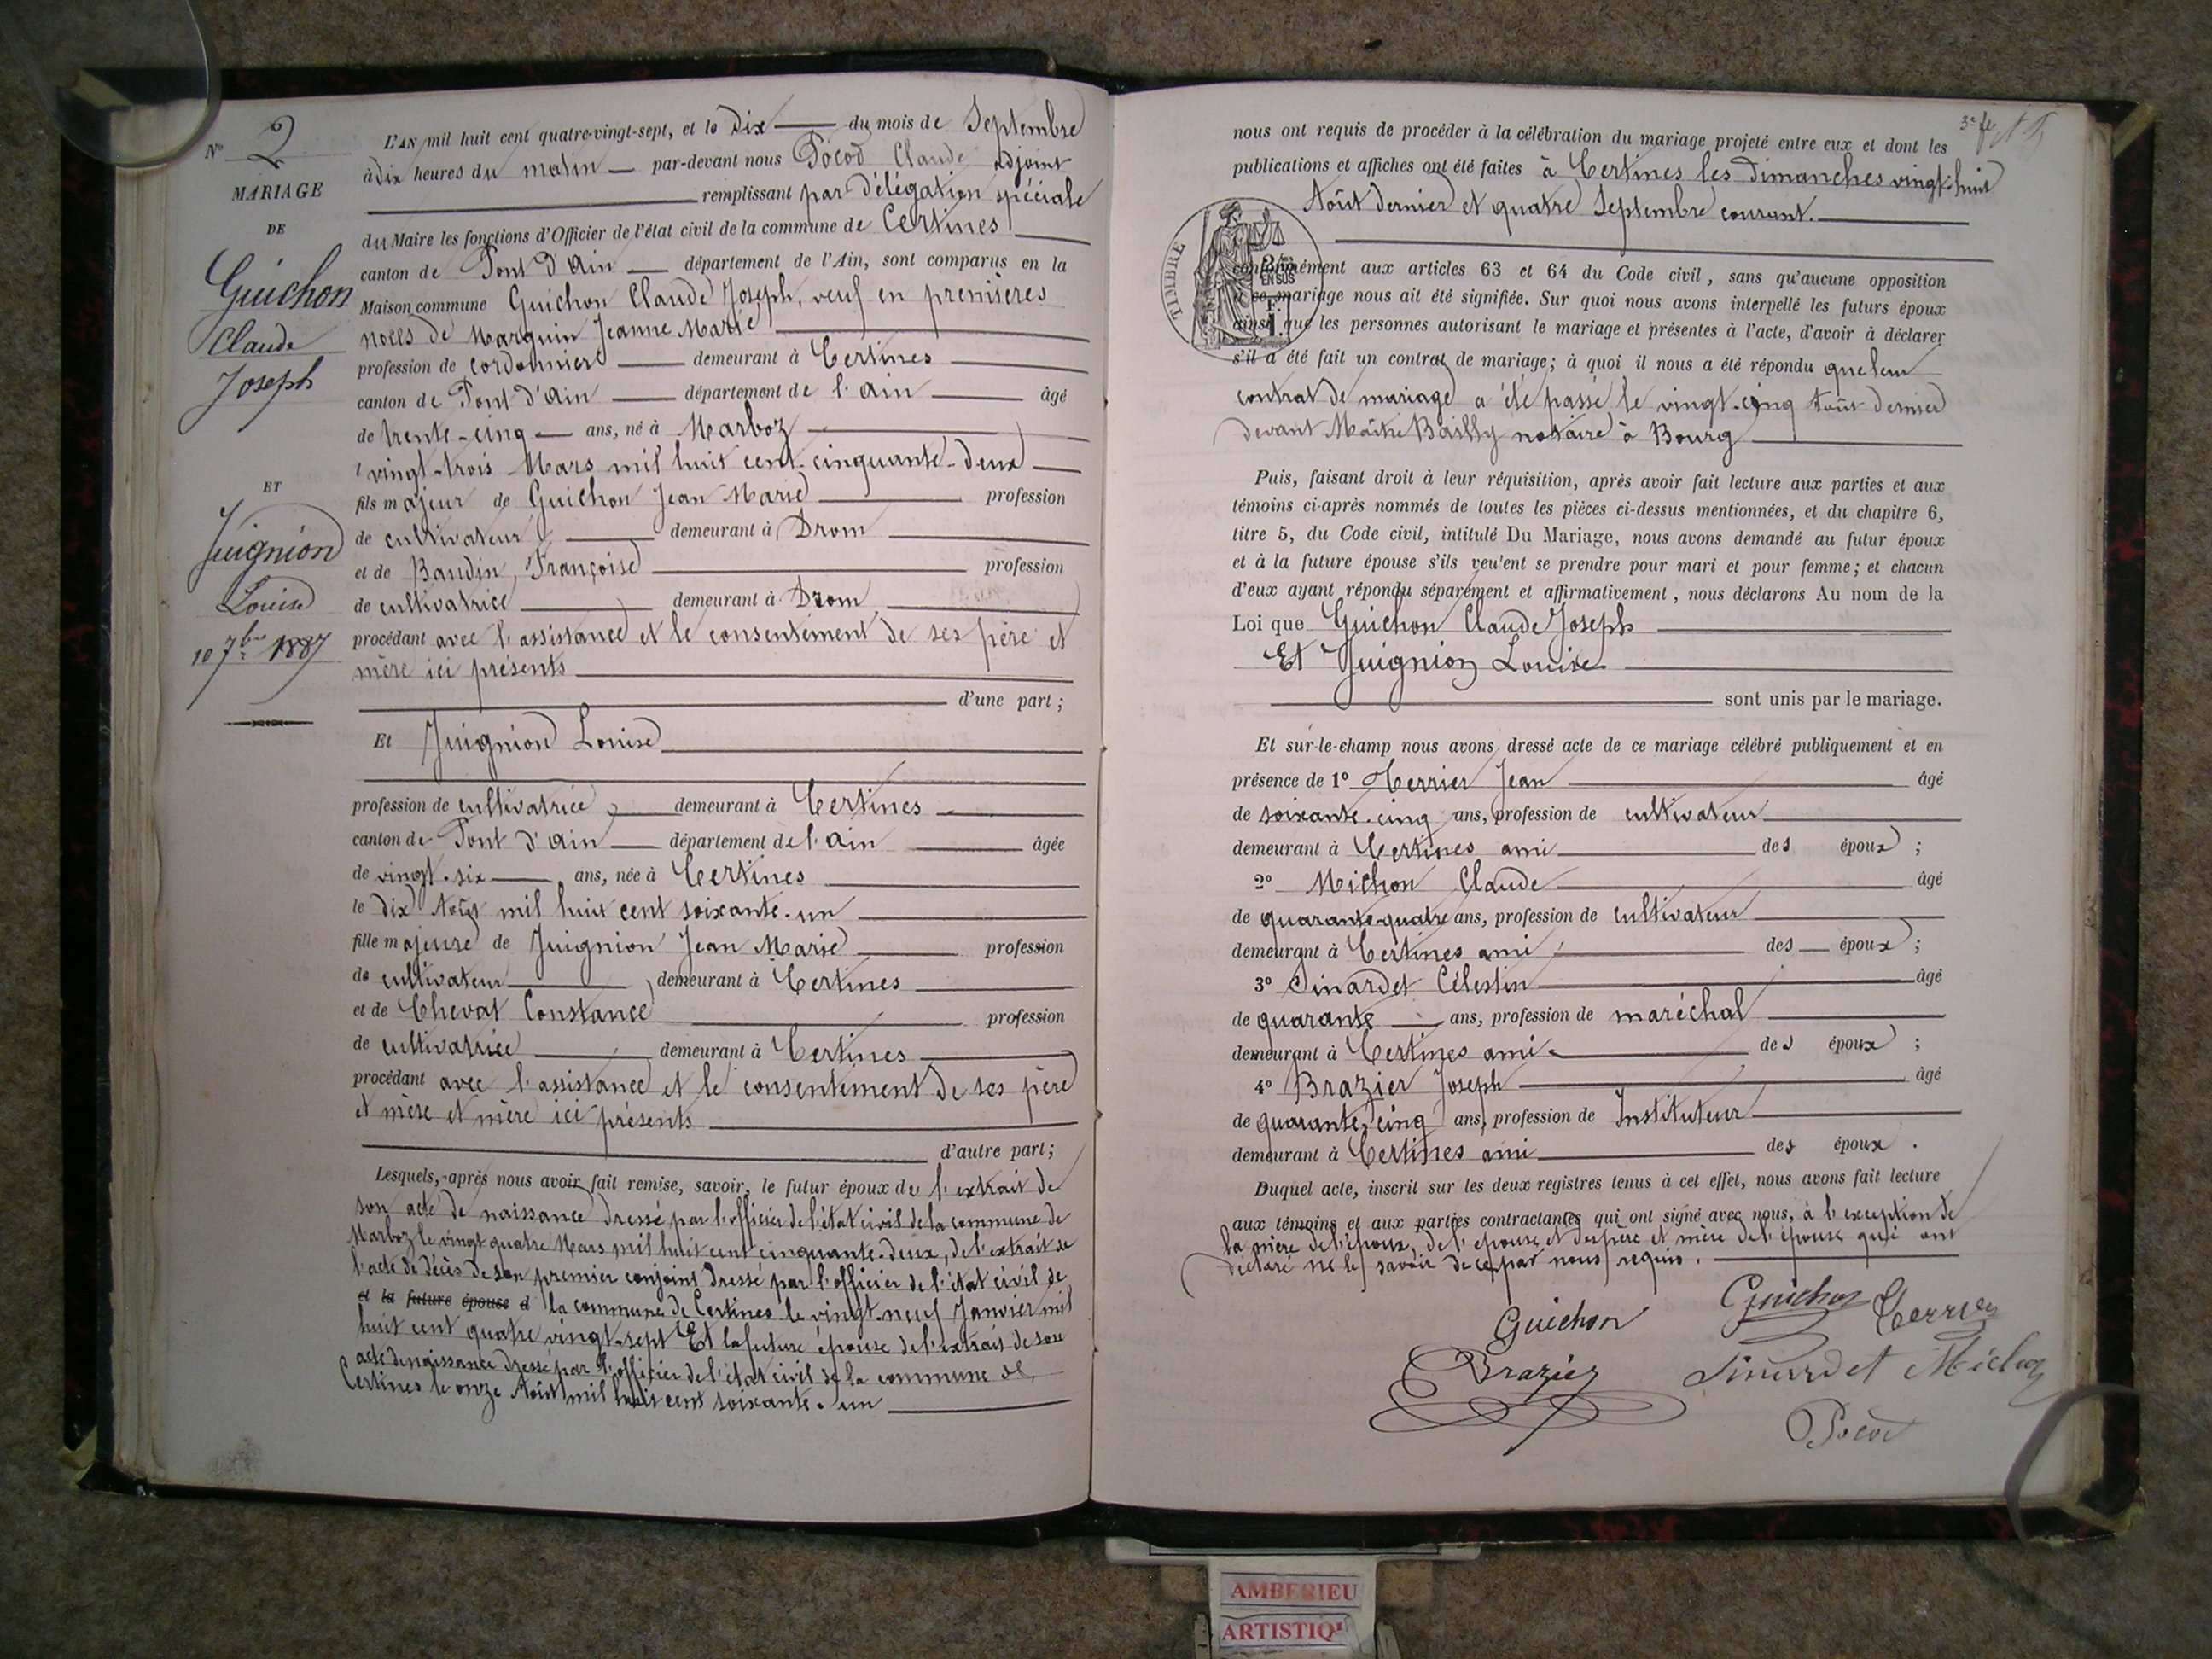 N° 2
MARIAGE
DE
Guichon
Claude
Joseph
ET
Juignion
Louise
10 7bre 1887
L'AN mil huit cent quatre-vingt-sept, et le dix du mois de Septembre
à dix heures du matin par-devant nous Pocod Claude adjoint
remplissant par délégation spéciale
du Maire les fonctions d'Officier de l'état civil de la commune de Certines
canton de Pont d'Ain département de l'Ain, sont comparus en la
Maison commune Guichon Claude Joseph, veuf en premières
noces de Marguin Jeanne Marie
profession de cordonnier demeurant à Certines
canton de Pont d'Ain département de l'Ain âgé
de trente-cinq ans, né à Marboz
vingt-trois Mars mil huit cent cinquante-deux
fils majeur de Guichon Jean Marie profession
de cultivateur demeurant à Drom
et de Baudin, Françoise profession
de cultivatrice demeurant à Drom
procédant avec l'assistance et le consentement de ses père et
mère ici présents
d'une part ;
Et Juignion Louise
profession de cultivatrice demeurant à Certines
canton de Pont d'Ain département de l'Ain âgée
de vingt-six ans, née à Certines
le dix Août mil huit cent soixante-un
fille majeure de Juignion Jean Marie profession
de cultivateur demeurant à Certines
et de Chevat Constance profession
de cultivatrice demeurant à Certines
procédant avec l'assistance et le consentement de ses père
et mère et mère ici présents
d'autre part ;
Lesquels, après nous avoir fait remise, savoir, le futur époux de l'extrait de
son acte de naissance dressé par l'officier de l'état civil de la commune de
Marboz le vingt quatre Mars mil huit cent cinquante-deux, de l'extrait de
l'acte de décès de son premier conjoins dressé par l'officier de l'état civil de
et la future épouse d la commune de Certines le vingt-neuf Janvier mil
huit cent quatre vingt-sept Et la future épouse de l'extrait de son
acte de naissance dressé par l'officier de l'état civil de la commune de
Certines le onze Août mil huit cent soixante-un
3e fe
nous ont requis de procéder à la célébration du mariage projeté entre eux et dont les
publications et affiches ont été faites à Certines les dimanches vingt-huit
Août dernier et quatre Septembre courant.
TIMBRE
EN SUS
conformément aux articles 63 et 64 du Code civil, sans qu'aucune opposition
à ce mariage nous ait été signifiée. Sur quoi nous avons interpellé les futurs époux
ainsi que les personnes autorisant le mariage et présentes à l'acte, d'avoir à déclarer
s'il a été fait un contrat de mariage; à quoi il nous a été répondu que leur
contrat de mariage a été passé le vingt-cinq Août dernier
devant Maître Bailly notaire à Bourg
Puis, faisant droit à leur réquisition, après avoir fait lecture aux parties et aux
témoins ci-après nommés de toutes les pièces ci-dessus mentionnées, et du chapitre 6,
titre 5, du Code civil, intitulé Du Mariage, nous avons demandé au futur époux
et à la future épouse s'ils veulent se prendre pour mari et pour femme; et chacun
d'eux ayant répondu séparément et affirmativement, nous déclarons Au nom de la
Loi que Guichon Claude Joseph
Et Juignion Louise
sont unis par le mariage.
Et sur-le-champ nous avons dressé acte de ce mariage célébré publiquement et en
présence de 1° Terrier Jean âgé
de soixante-cinq ans, profession de cultivateur
demeurant à Certines ami des époux ;
2° Michon Claude âgé
de quarante-quatre ans, profession de cultivateur
demeurant à Certines ami des époux ;
3° Sinardet Célestin âgé
de quarante ans, profession de maréchal
demeurant à Certines ami des époux ;
4° Brazier Joseph âgé
de quarante-cinq ans, profession de Instituteur
demeurant à Certines ami des époux.
Duquel acte, inscrit sur les deux registres tenus à cet effet, nous avons fait lecture
aux témoins et aux parties contractantes qui ont signé avec nous, à l'exception de
la mère de l'époux, de l'épouse et des père et mère de l'épouse qui ont
déclaré ne le savoir de ce par nous requis.
Guichon Guichon Terrier
Brazier Sinardet Michon
Pocod
AMBERIEU
ARTISTIQ